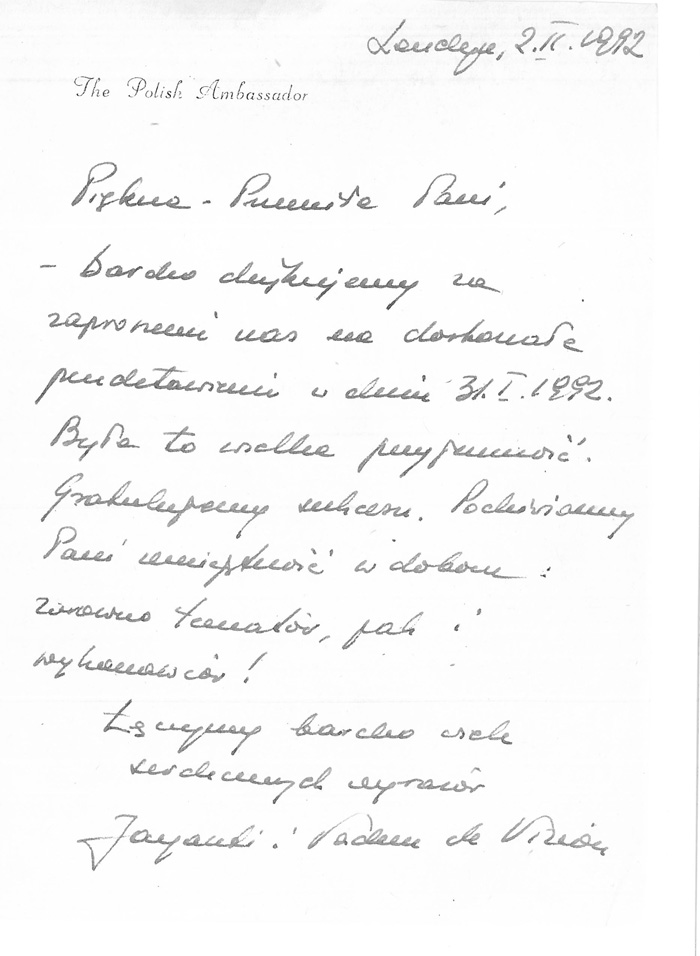 Londyn, 2.II.1992
The Polish Ambassador
Piękna - Przemiła Pani,
- bardzo dziękujemy za
zaproszenie nas na doskonałe
przedstawienie w dniu 31.I.1992.
Była to wielka przyjemność.
Gratulujemy sukcesu. Podziwiamy
Pani umiejętność w doborze:
zarówno tematów, jak i
wykonawców!
Łączymy bardzo wiele
serdecznych wyrazów
de Virion